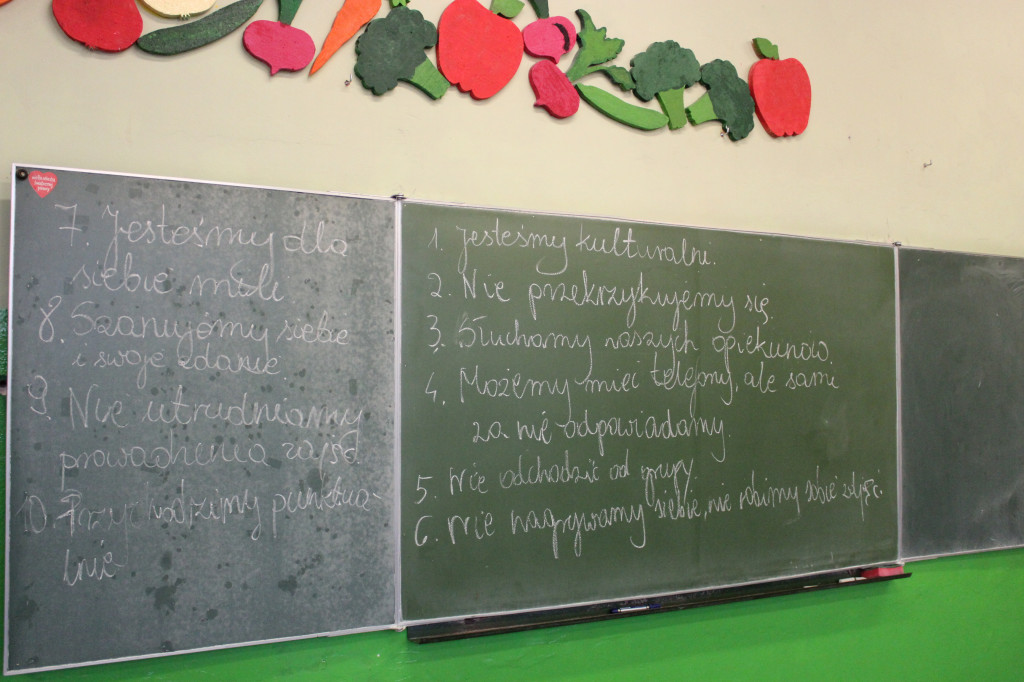 1. Jesteśmy kulturalni.
2. Nie przekrzykujemy się.
3. Słuchamy naszych opiekunów.
4. Możemy mieć telefony, ale sami
za nie odpowiadamy.
5. Nie odchodzić od grupy
6. Nie nagrywamy siebie, nie robimy sobie zdjęć.
7. Jesteśmy dla
siebie mili
8. Szanujemy siebie
i swoje zdanie
9. Nie utrudniamy
prowadzenia zajęć
10. Przychodzimy punktua-
lnie